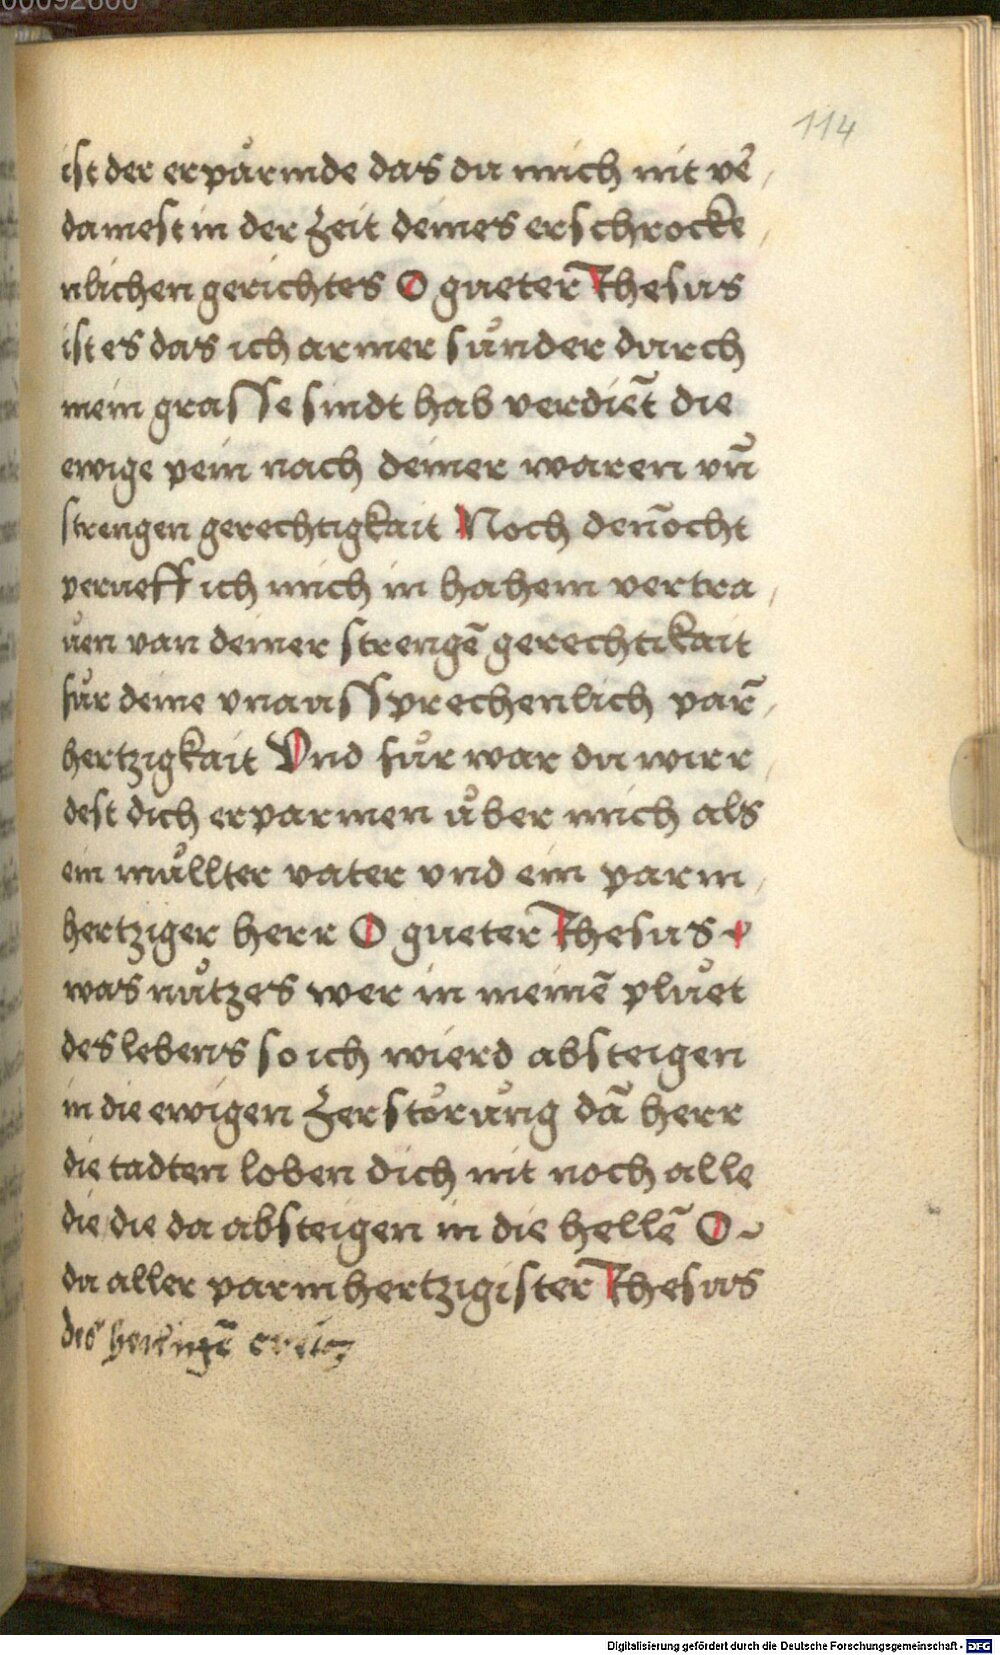 00092600
114
ist der erpärmde das du mich nit vē
damest in der zeit deines erschrocke
nlichen gerichtes O gueter Jhesus
ist es das ich armer sůnder durch
mein grasse sündt hab verdiēt die
ewige pein nach deiner waren vn̄
strengen gerechtigkait Noch den̄ocht
perueff ich mich in hahem vertra
uen van deiner strengē gerechtikait
fůr deine vnaussprechenlich parm̄
hertzigkait Vnd fůr war du wirr
dest dich erparmen ůber mich als
ein můllter vater vnd ein parm
hertziger herr O gueter Jhesus
was nůtzes wer in meinē pluet
des lebens so ich wierd absteigen
in die ewigen zerstörung dā herr
die tadten loben dich nit noch alle
die die da absteigen in die hellē O
du aller parmhertzigister Jhesus
des heilingē
Digitalisierung gefördert durch die Deutsche Forschungsgemeinschaft - DFG